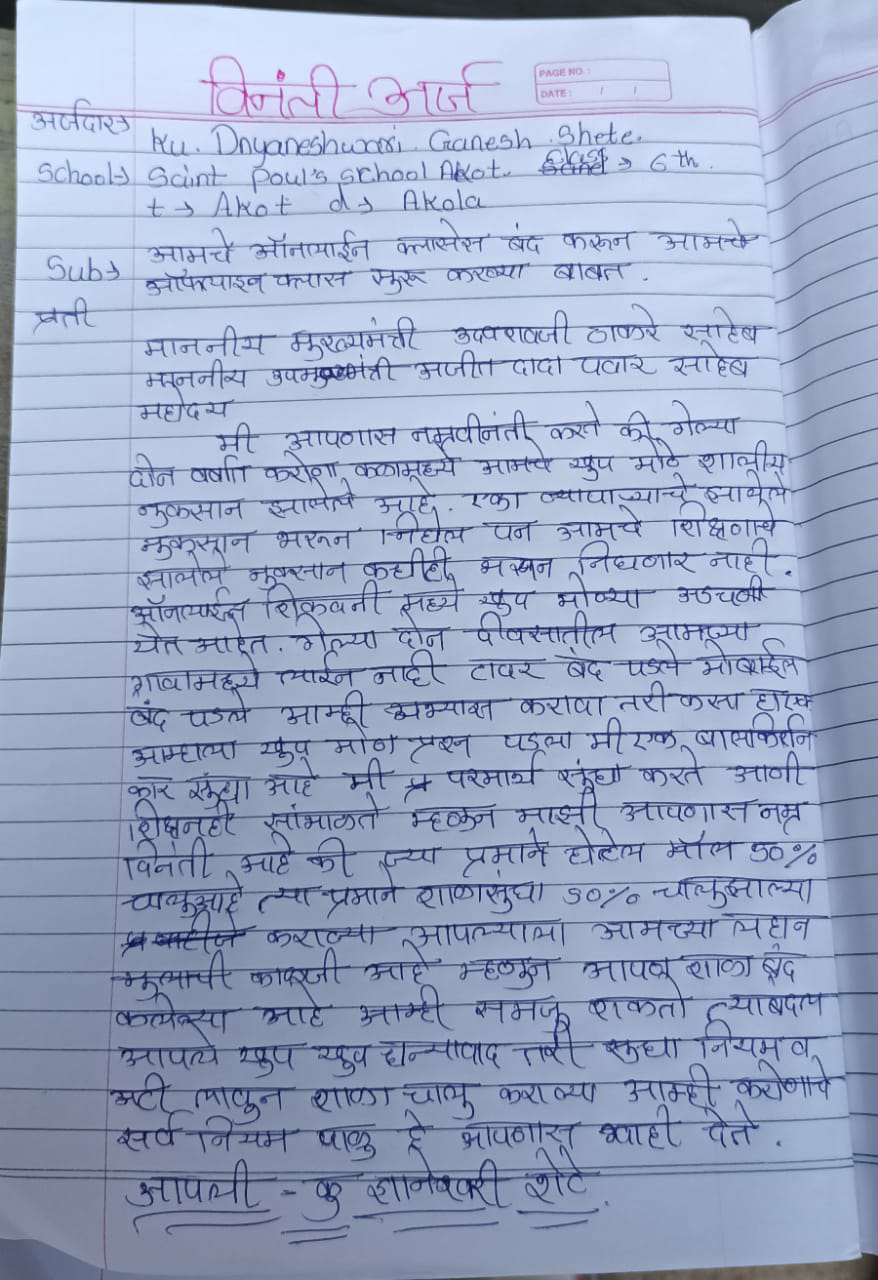 विनंती अर्ज
PAGE NO. :
DATE : / /
अर्जदार→
Ku. Dnyaneshwari Ganesh Shete.
School→ Saint Poul's school Akot. Class → 6 th.
t → Akot d→ Akola
आमचे ऑनलाईन क्लासेस बंद करून आमचे
Sub→ ऑफलाइन क्लास सुरू करण्या बाबत.
प्रती
माननीय मुख्यमंत्री उध्दवरावजी ठाकरे साहेब
माननीय उपमुख्यमंत्री अजीत दादा पवार साहेब
महोदय
मी आपणास नम्रवीनंती करते की गेल्या
दोन वर्षात करोना काळामध्ये आमचे खुप मोठे शालीय
नुकसान झालेले आहे. एका व्यापाऱ्याचे झालेले
नुकसान भरून निघेल पन आमचे शिक्षणाचे
झालेले नुकसान कधीही भरून निघणार नाही.
ऑनलाईन शिकवनी मध्ये खुप मोठ्या अडचणी
येत आहेत. गेल्या दोन दीवसातील आमच्या
गावामध्ये लाईन नाही टावर बंद पडले मोबाईल
बंद पडले आम्ही अभ्यास करावा तरी कसा हाच
आम्हाला खुप मोठा प्रश्न पडला मी एक बालकिर्तन
कार सुध्दा आहे मी परमार्थ सुध्दा करते आणी
शिक्षनही सांभाळते म्हणुन माझी आपणास नम्र
विनंती आहे की ज्या प्रमाने होटेल मॉल 50%
चालु आहे त्या प्रमाने शाळासुध्दा 50% चालु
कराव्या आपल्याला आमच्या लहान
मुलाची काळजी आहे म्हणुन आपण शाळा बंद
केलेल्या आहे आम्ही समजू शकतो त्याबदल
आपले खुप खुप धन्यावाद तरी सुध्दा नियम व
अटी लावुन शाळा चालु कराव्या आम्ही करोणाचे
सर्व नियम पाळु हे आपणास ग्वाही देते.
आपली - कु ज्ञानेश्वरी शेटे.